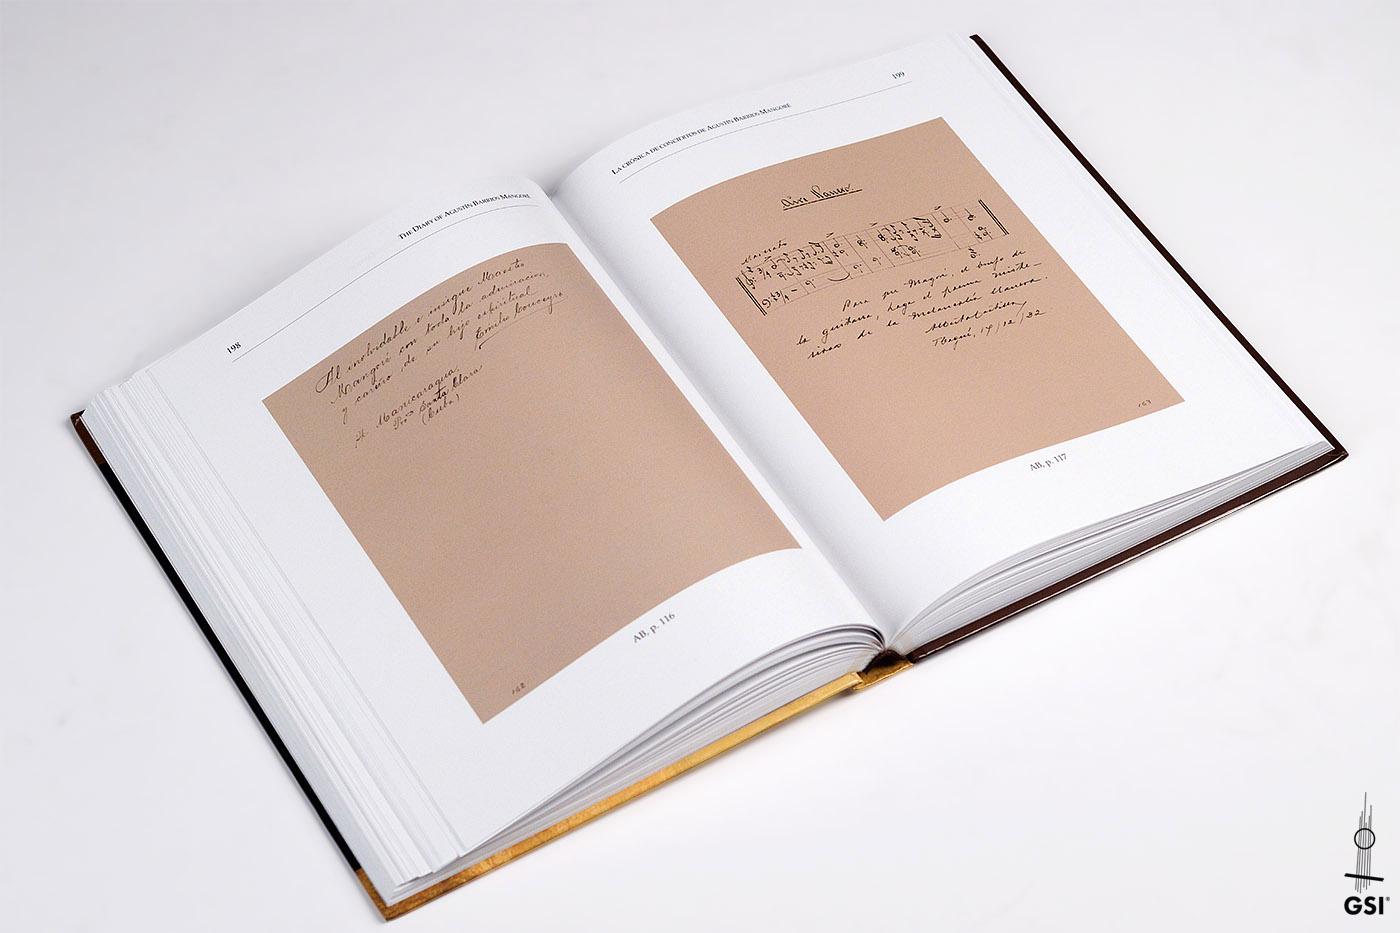 198
THE DIARY OF AGUSTÍN BARRIOS MANGORÉ
Al inolvidable e insigne Maestro
Mangoré con toda la admiracion,
y cariño de su hijo espiritual
Emilio
Manicaragua,
Santa Clara
(Cuba)
162
AB, p. 116
LA CRÓNICA DE CONCIERTOS DE AGUSTÍN BARRIOS MANGORÉ
199
Aire
Para mi Magoré, el brujo de
la guitarra, hago el poema miste-
rioso de la melancolía llanera.
Ibagué, 17/12/32
163
AB, p. 117
GSI®